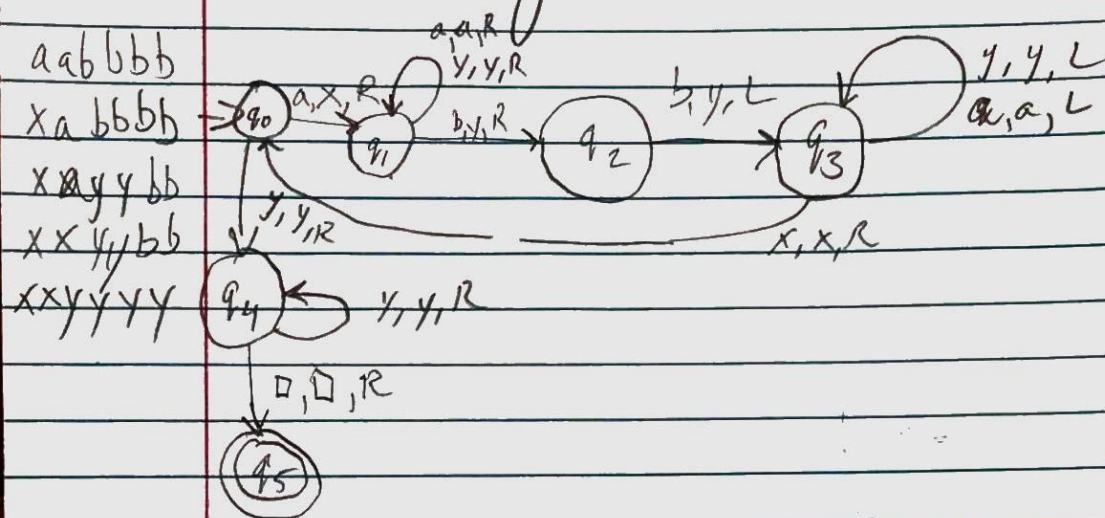 aabbbb
xabbbb
xayybb
xxyybb
xxyyyy
a,a,R
y,y,R
q0
a,x,R
q1
b,y,R
q2
b,y,L
q3
y,y,L
a,a,L
y,y,R
x,x,R
q4
y,y,R
□,□,R
q5